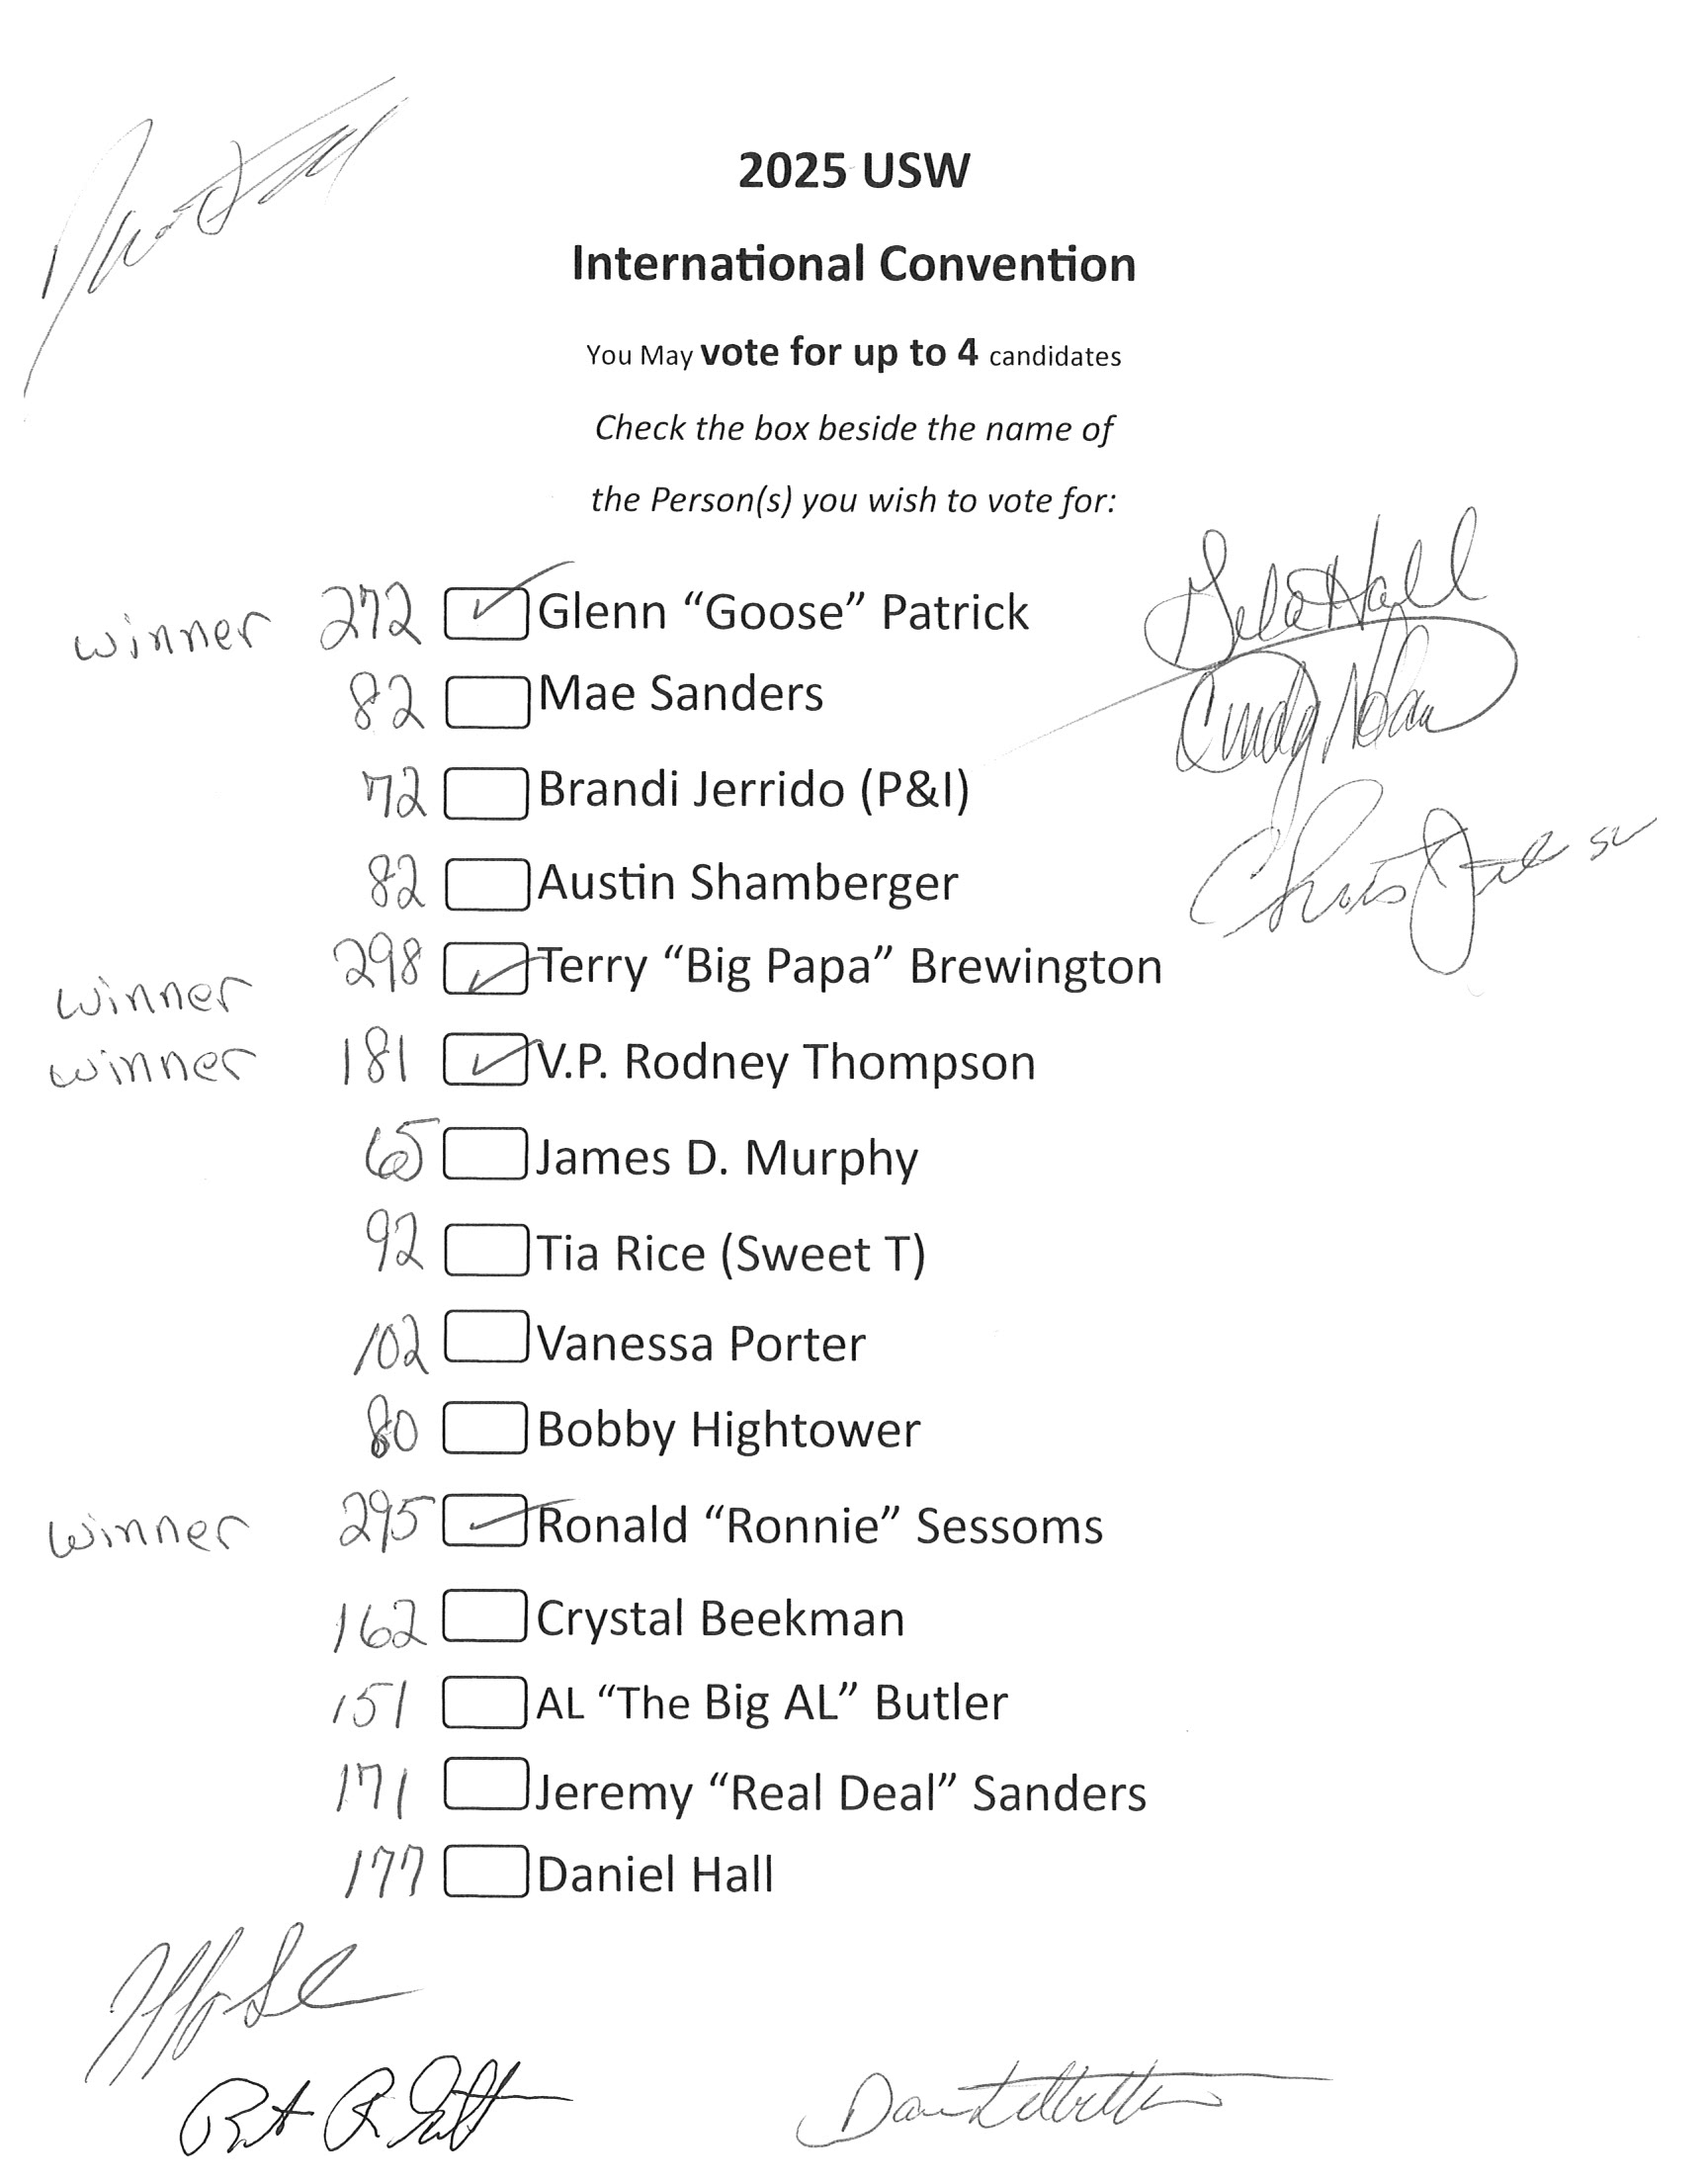 2025 USW
International Convention
You May vote for up to 4 candidates
Check the box beside the name of
the Person(s) you wish to vote for:
winner 272 Glenn “Goose” Patrick
82 Mae Sanders
72 Brandi Jerrido (P&I)
82 Austin Shamberger
winner 298 Terry “Big Papa” Brewington
winner 181 V.P. Rodney Thompson
65 James D. Murphy
92 Tia Rice (Sweet T)
102 Vanessa Porter
80 Bobby Hightower
winner 295 Ronald “Ronnie” Sessoms
162 Crystal Beekman
151 AL “The Big AL” Butler
171 Jeremy “Real Deal” Sanders
177 Daniel Hall
Hall
Cindy Nolan
Chris